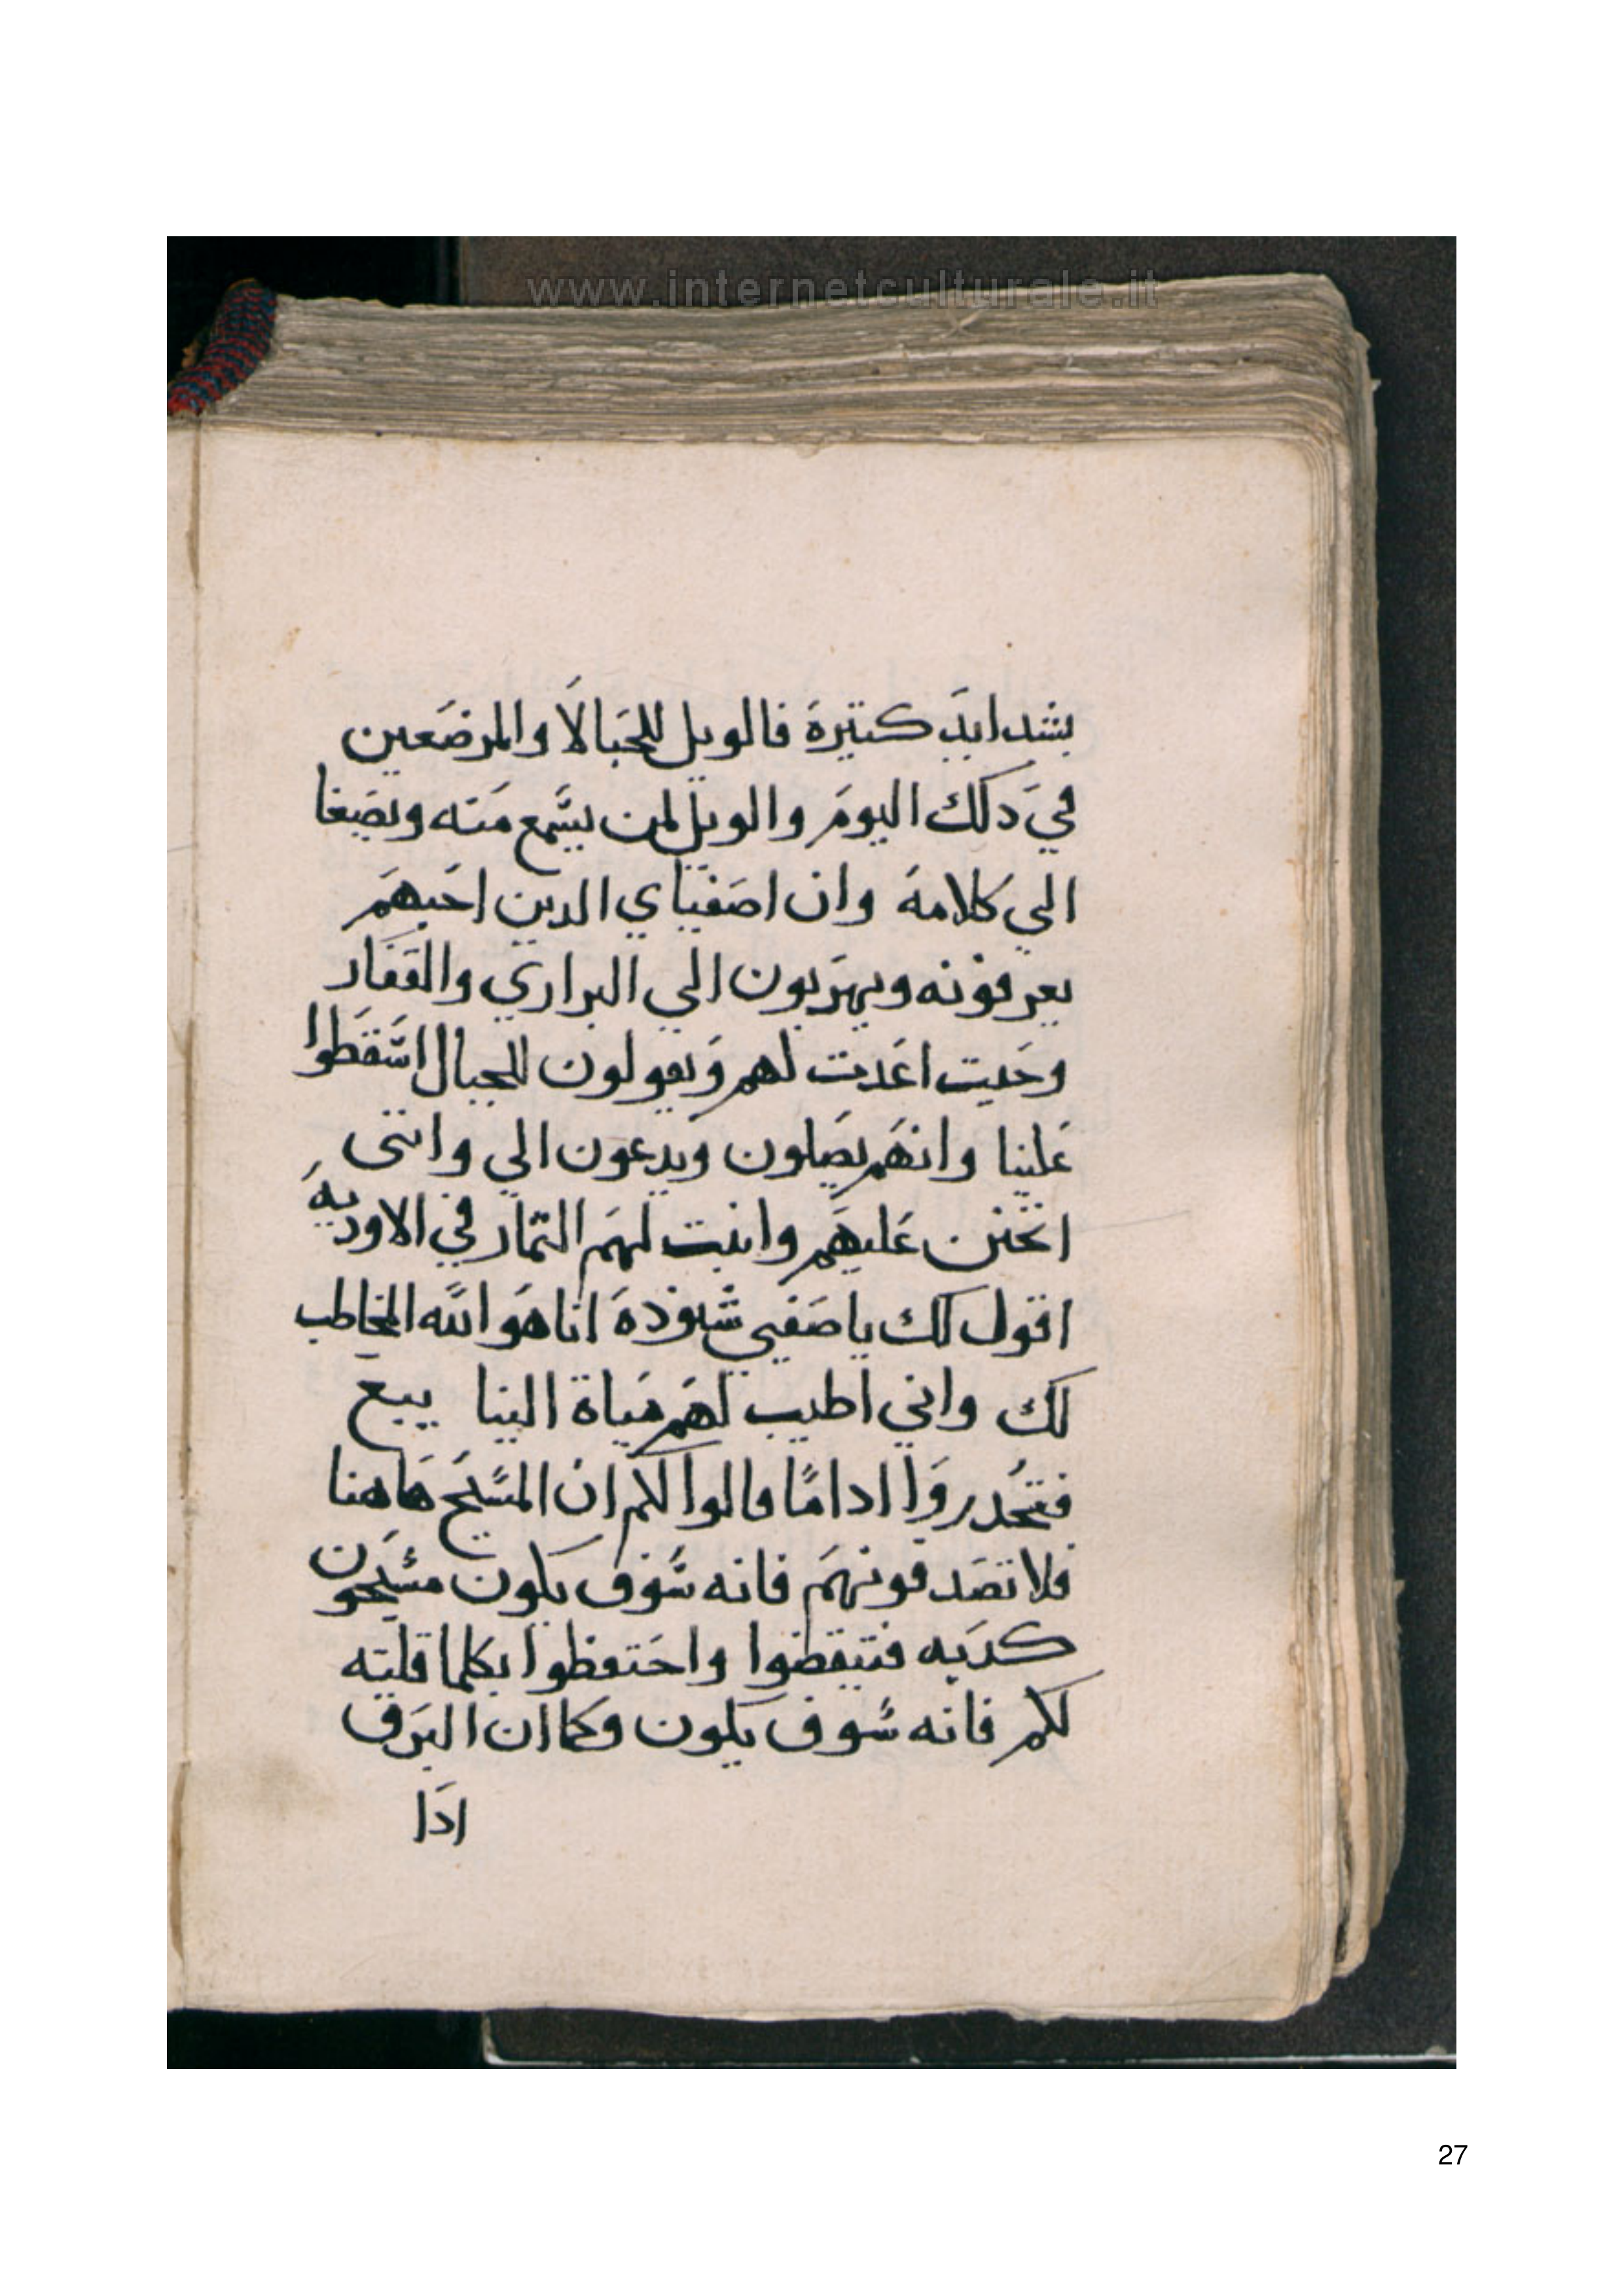 www.internetculturale.it
بشدايد كتيرة فالويل للحبالا والمرضعين
في دلك اليوم والويل لمن يسمع منه ويصغا
الي كلامه وان اصفياي الدين احبهم
يعرفونه ويهربون الي البراري والقفار
وحيت اعديت لهم ويقولون للجبال اسقطوا
علينا وانهم يصلون ويدعون الي وانتى
اتحنن عليهم وانبت لهم التمار في الاوديه
اقول لك يا صفيي شنودة انا هو الله المخاطب
لك واني اطيب لهم مياة الينا بيع
فتحدروا ادا ما قالوا لكم ان المسيح هاهنا
فلا تصدقونهم فانه سوف يكون مسيحون
كدبه فتيقضوا واحتفظوا بكلما قلته
لكم فانه سوف يكون وكما ان البرق
ادا
27